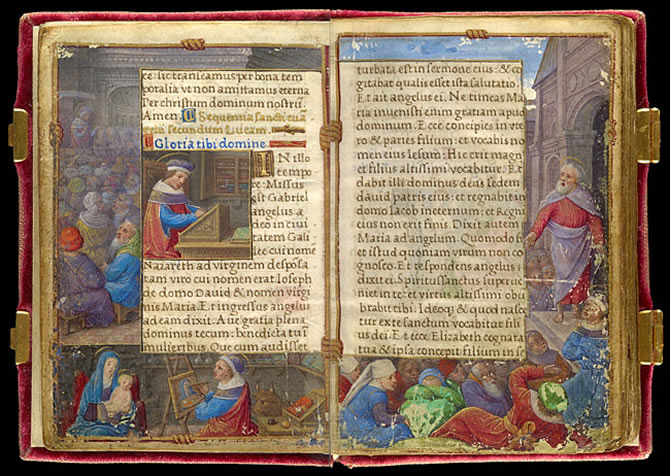 ce sic transeamus per bona tem
poralia vt non amittamus eterna
Per christum dominum nostrū.
Amen. Sequentia sancti eua
gelii secundum Lucam.
Gloria tibi domine.
IN illo
tempo
re: Missus
est Gabriel
angelus a
deo in ciui
tatem Gali
lee cui nome
Nazareth ad virginem despōsa
tam viro cui nomen erat Ioseph
de domo Dauid & nomen virgi
nis Maria. Et ingressus angelus
ad eam dixit. Aue gratia plena
dominus tecum: benedicta tu ī
mulieribus. Que cum audisset
turbata est in sermone eius: & co
gitabat qualis esset ista salutatio
Et ait angelus ei. Ne timeas Ma
ria inuenisti enim gratiam apud
dominum. Et ecce concipies in vte
ro & paries filium: et vocabis no
men eius Iesum: Hic erit magn
et filius altissimi vocabitur. Et
dabit illi dominus deus sedem
dauid patris eius: et regnabit in
domo Iacob in eternum: et Regni
eius non erit finis. Dixit autem
Maria ad angelum. Quomodo fi
et istud quoniam virum non co
gnosco. Et respondens angelus
dixit ei. Spiritussanctus superue
niet in te: et virtus altissimi obu
brabit tibi. Ideoq; & quod nasce
tur ex te sanctum vocabitur fili
us dei. Et ecce Elizabeth cognata
tua & ipsa concepit filium in s